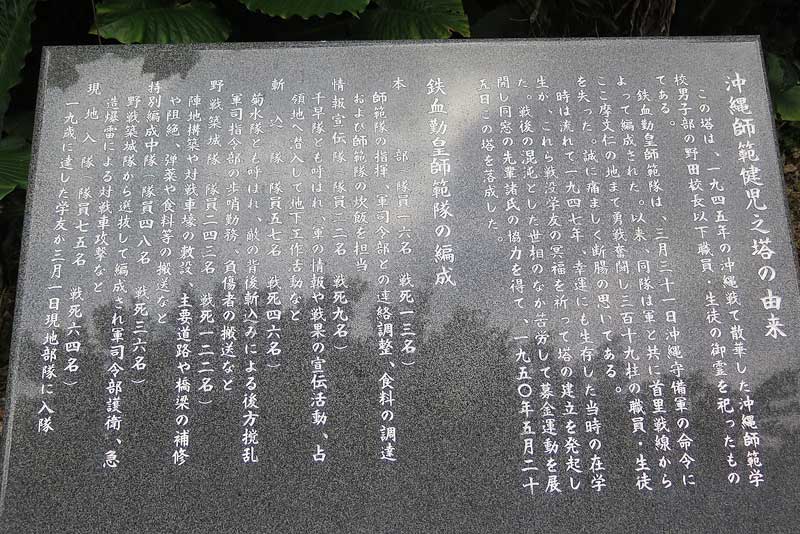 沖縄師範健児之塔の由来
この塔は、一九四五年の沖縄戦で散華した沖縄師範学
校男子部の野田校長以下職員・生徒の御霊を祀ったもの
である。
鉄血勤皇師範隊は、三月三十一日沖縄守備軍の命令に
よって編成された。以来、同隊は軍と共に首里戦線から
ここ摩文仁の地まで勇戦奮闘し三百十九柱の職員・生徒
を失った。誠に痛ましく断腸の思いである。
時は流れて一九四七年、幸運にも生存した当時の在学
生が、これら戦没学友の冥福を祈って塔の建立を発起し
た。戦後の混沌とした世相のなか苦労して募金運動を展
開し同窓の先輩諸氏の協力を得て、一九五〇年五月二十
五日この塔を落成した。
鉄血勤皇師範隊の編成
本部(隊員一六名 戦死一三名)
師範隊の指揮、軍司令部との連絡調整、食料の調達
および師範隊の炊飯を担当
情報宣伝隊(隊員二二名 戦死九名)
千早隊とも呼ばれ、軍の情報や戦果の宣伝活動、占
領地へ潜入して地下工作活動など
斬込隊(隊員五七名 戦死四六名)
菊水隊とも呼ばれ、敵の背後斬込みによる後方撹乱
軍司指令部の歩哨勤務、負傷者の搬送など
野戦築城隊(隊員二四三名 戦死一二二名)
陣地構築や対戦車壕の敷設、主要道路や橋梁の補修
や阻絶、弾薬や食料等の搬送など
特別編成中隊(隊員四八名 戦死三六名)
野戦築城隊から選抜して編成され軍司令部護衛、急
造爆雷による対戦車攻撃など
現地入隊(隊員七五名 戦死六四名)
一九歳に達した学友が三月一日現地部隊に入隊